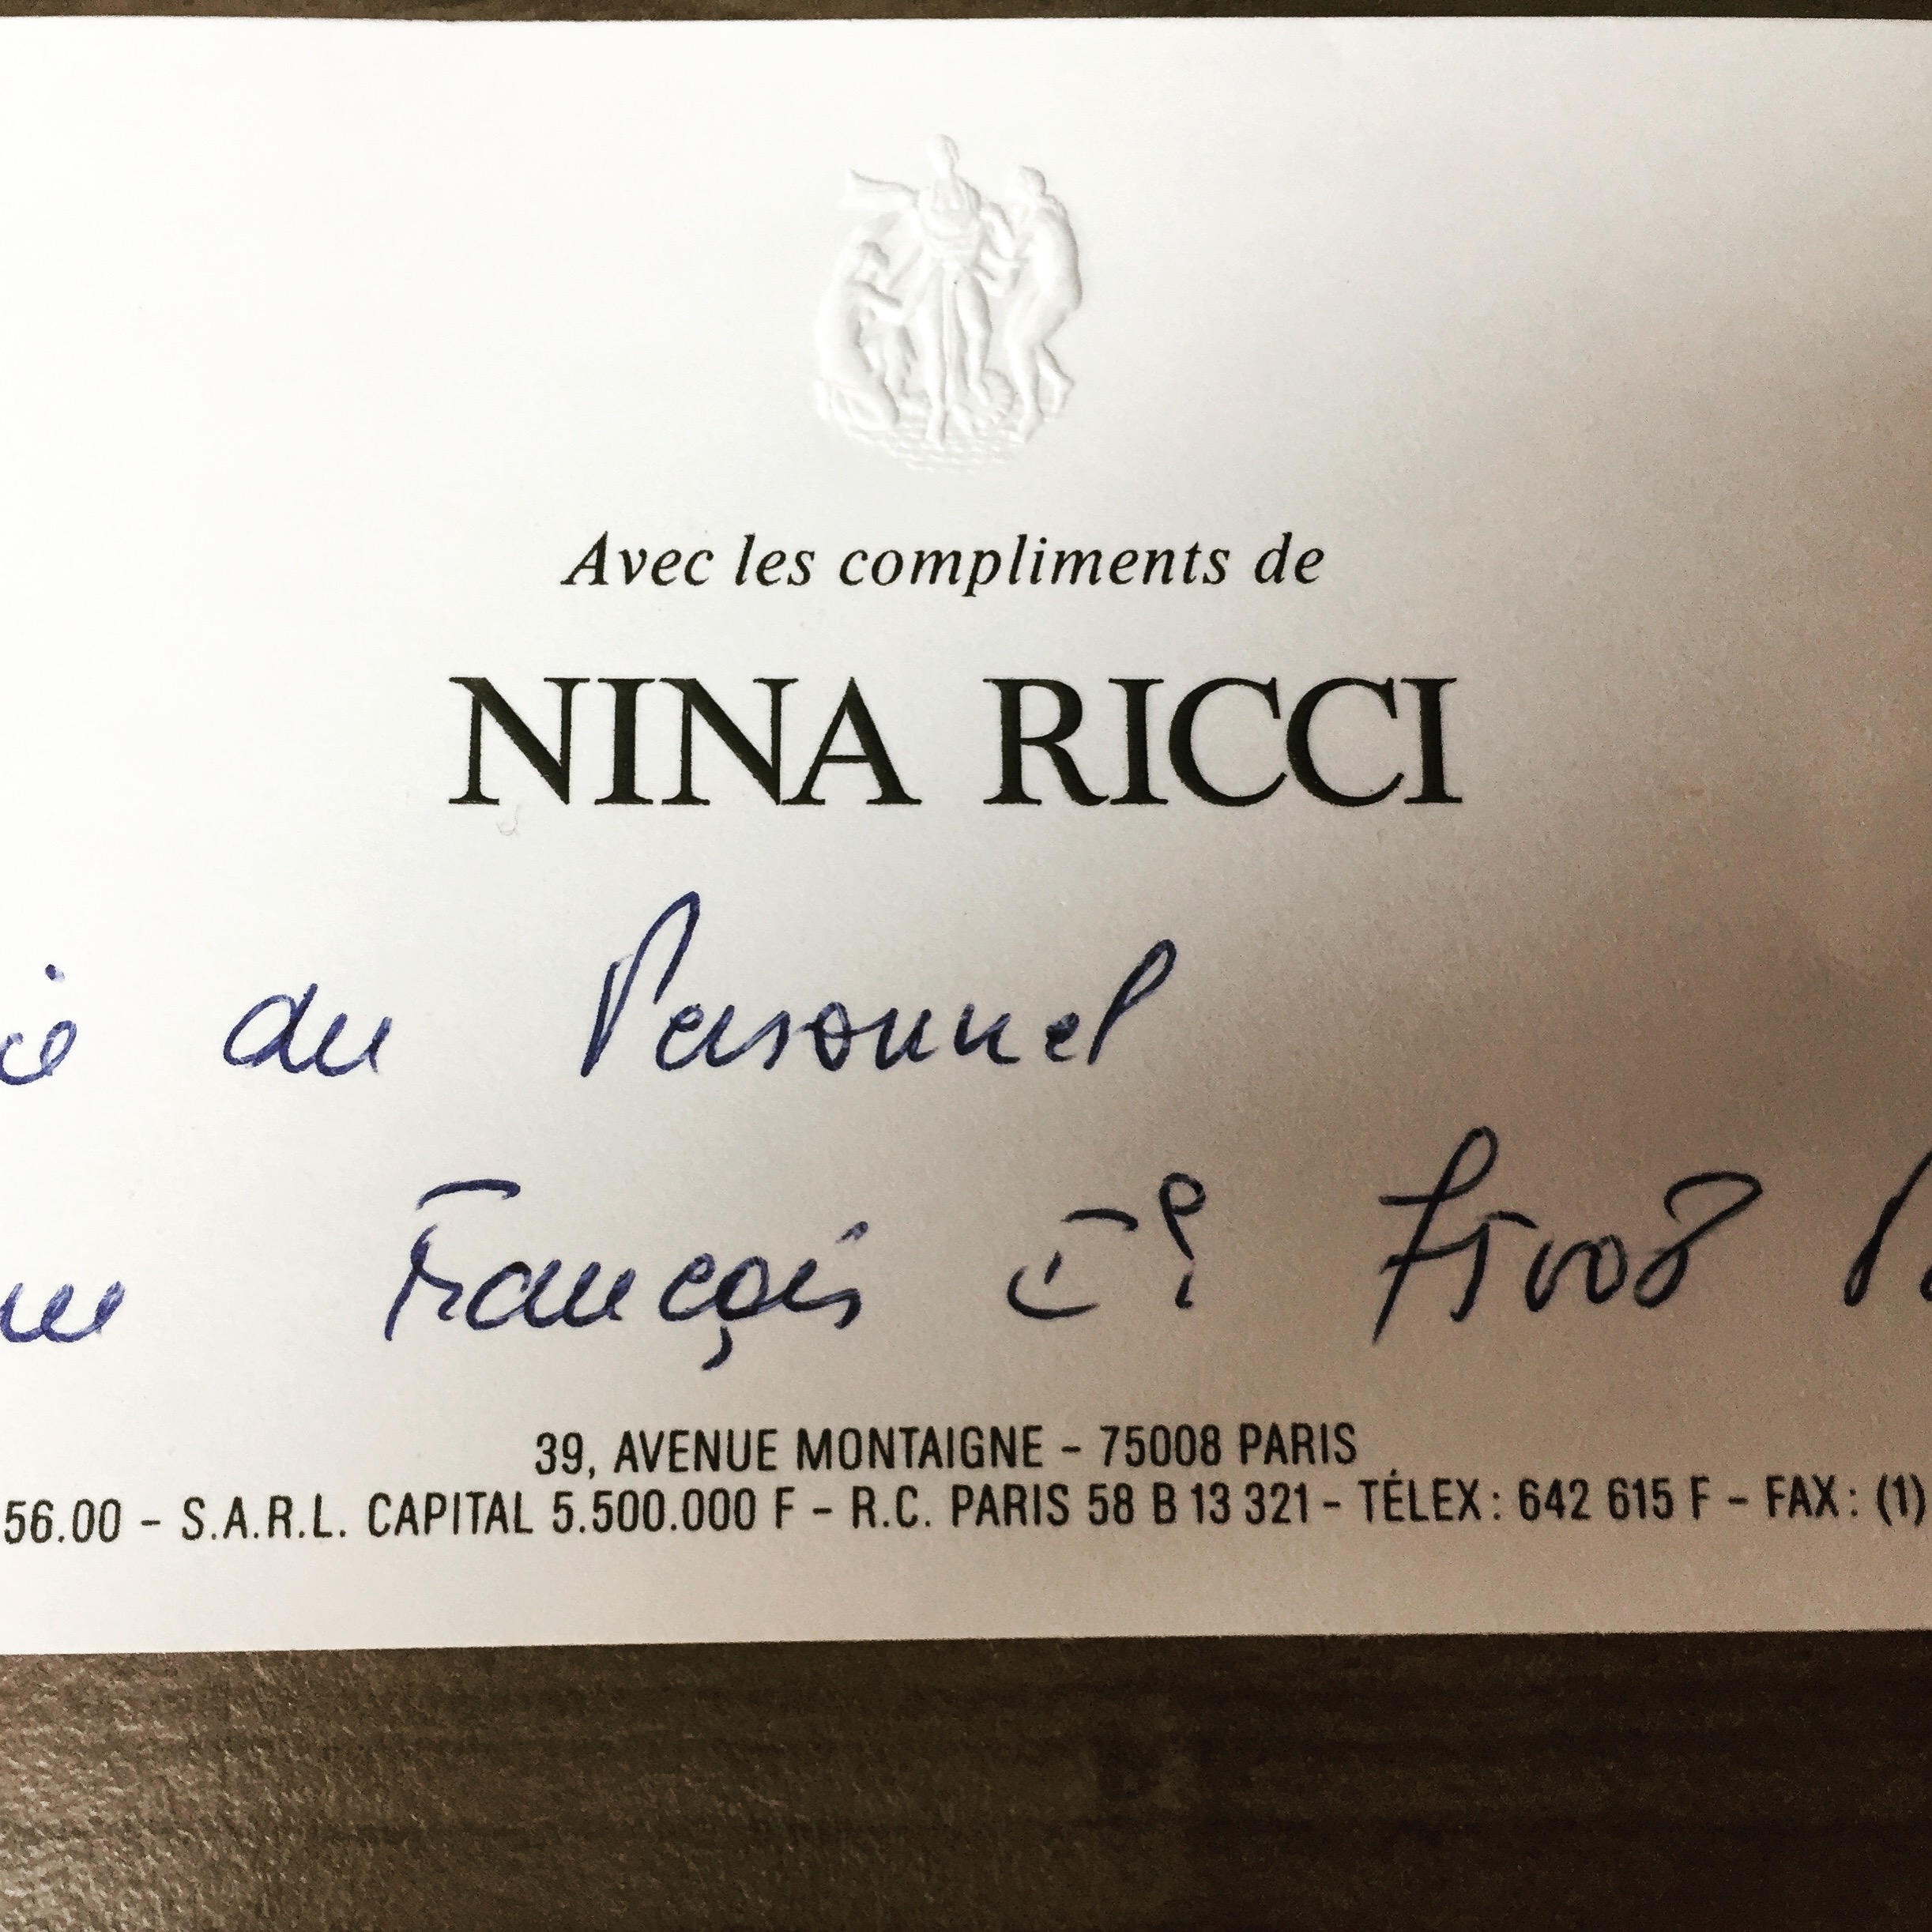 Avec les compliments de
NINA RICCI
ie du Personnel
François Iᵉʳ 75008
39, AVENUE MONTAIGNE - 75008 PARIS
56.00 - S.A.R.L. CAPITAL 5.500.000 F - R.C. PARIS 58 B 13 321 - TÉLEX : 642 615 F - FAX : (1)